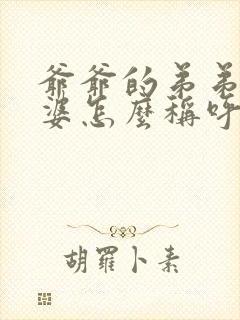 爺爺的弟弟
婆怎麼稱呼
胡羅卜素